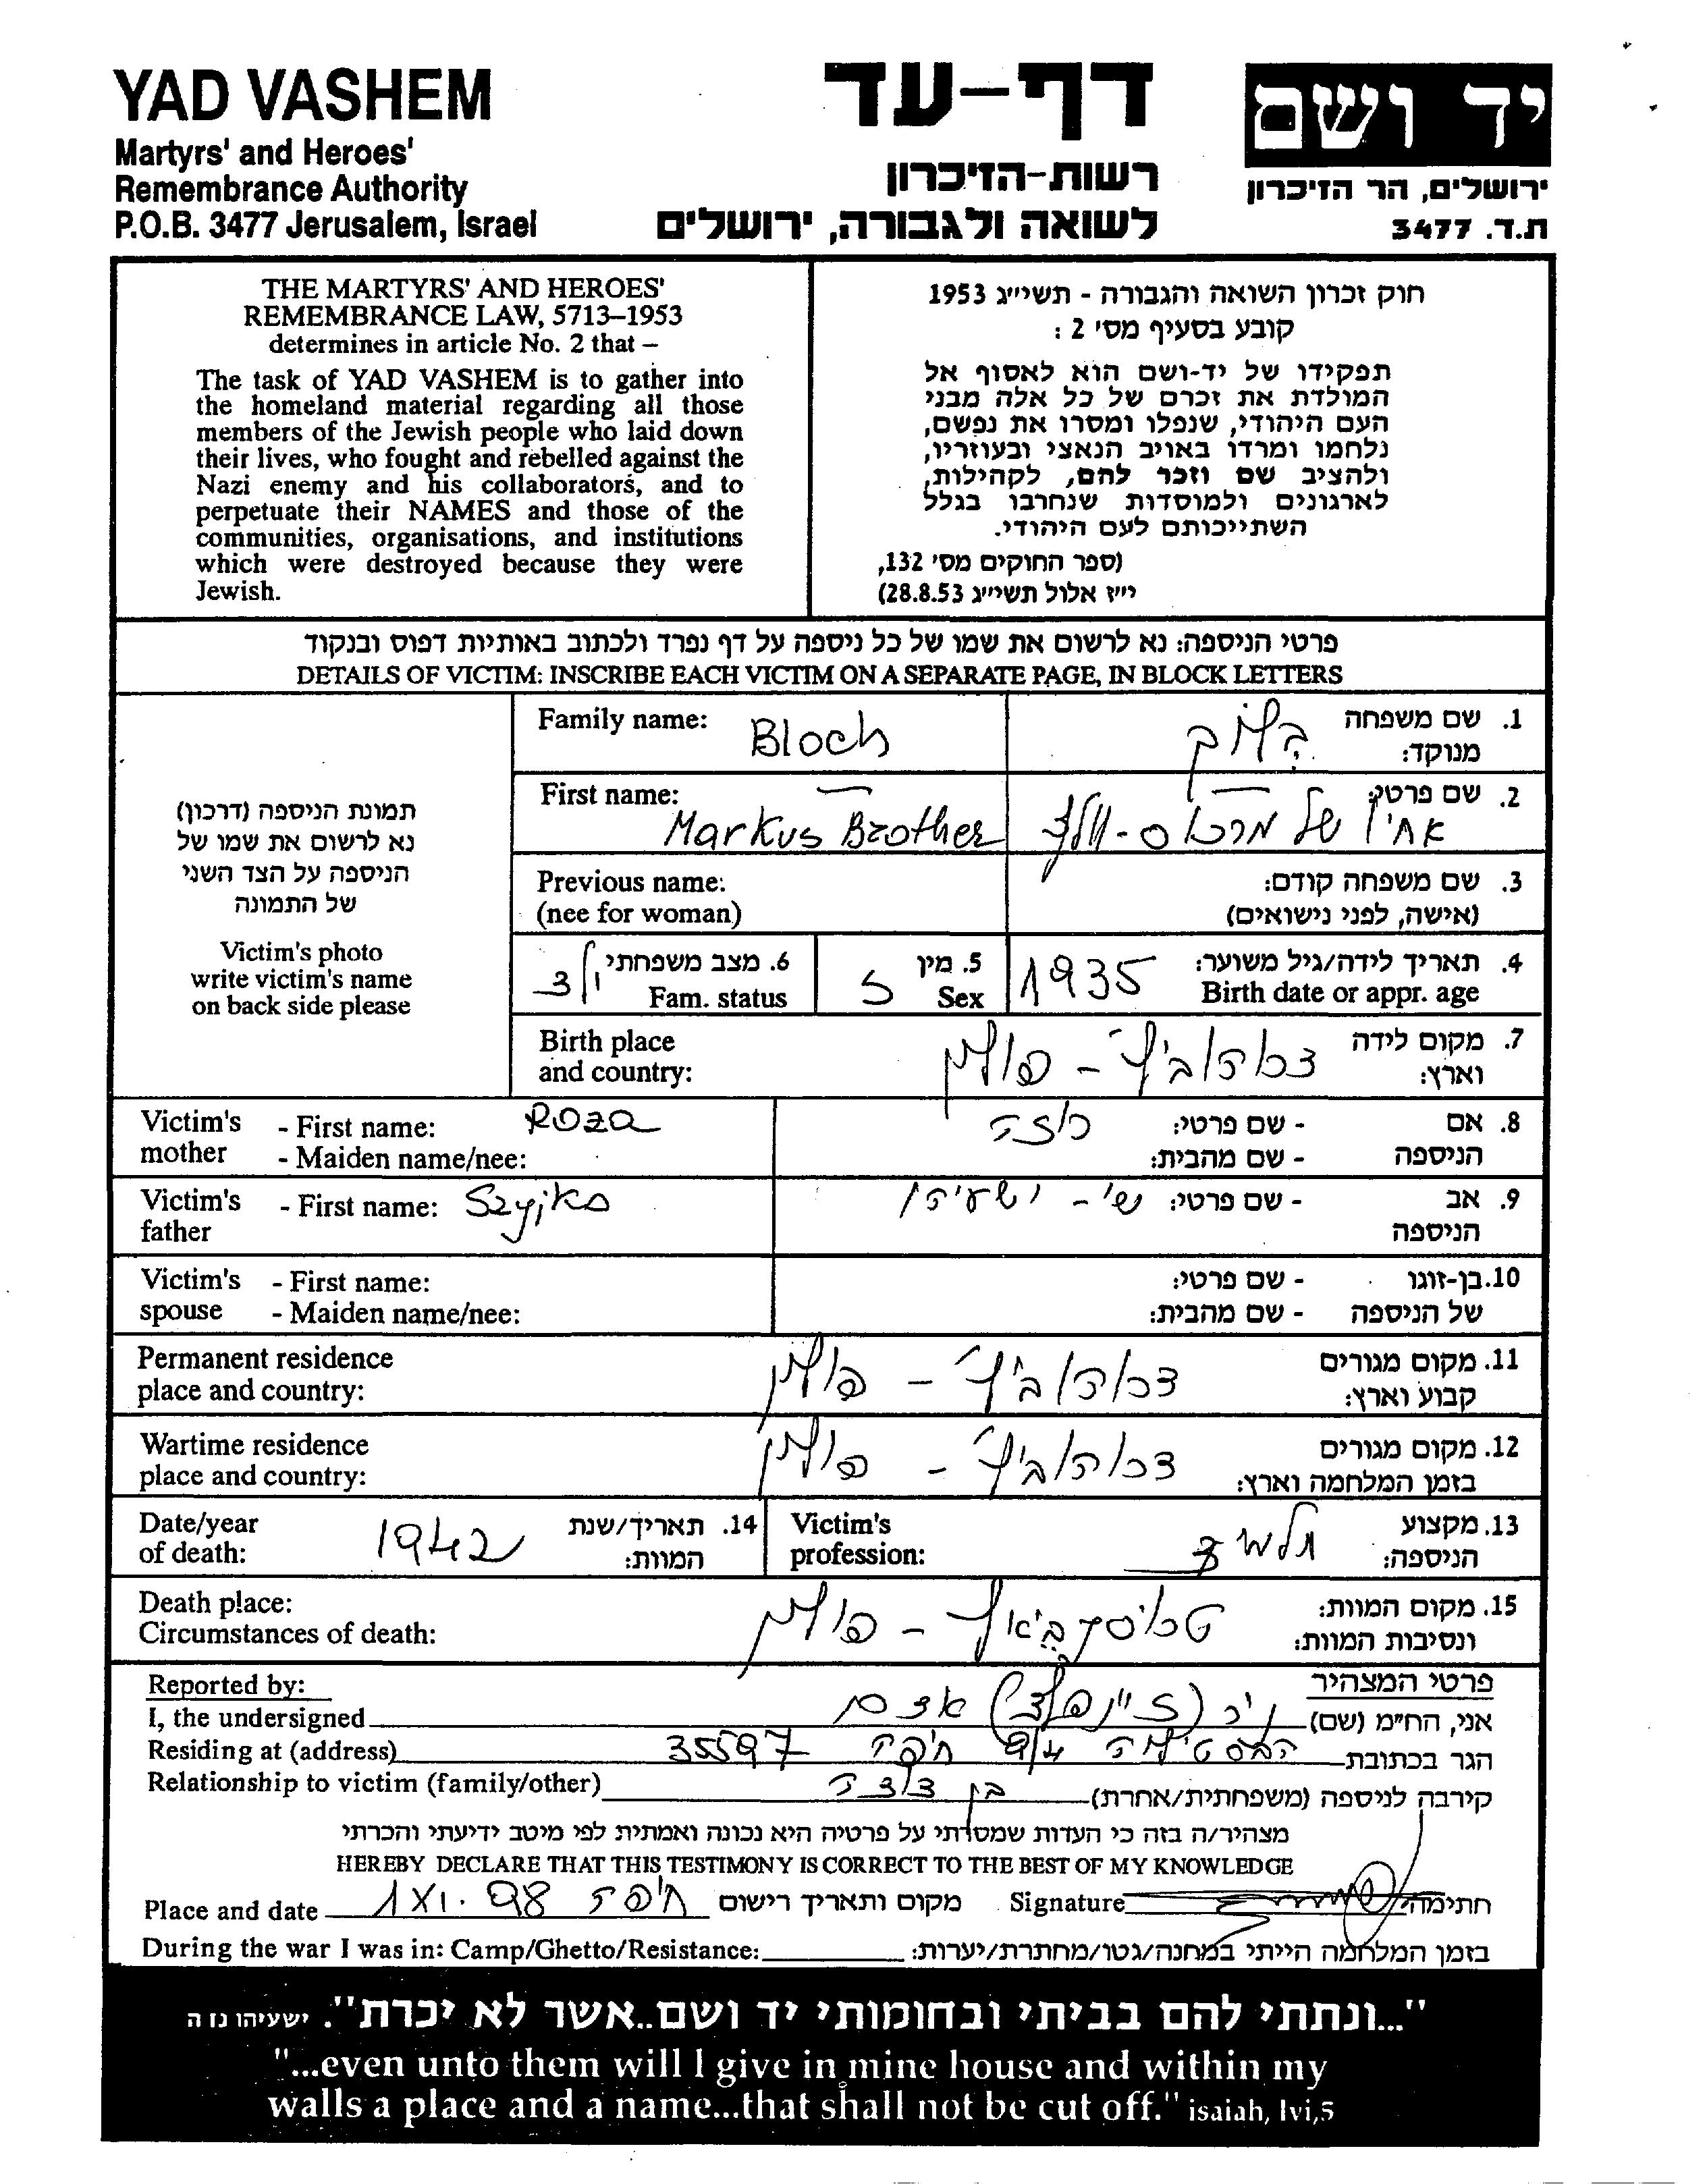 YAD VASHEM
Martyrs' and Heroes'
Remembrance Authority
P.O.B. 3477 Jerusalem, Israel
דף-עד
רשות-הזיכרון
לשואה ולגבורה, ירושלים
יד ושם
ירושלים, הר הזיכרון
ת.ד. 3477
THE MARTYRS' AND HEROES'
REMEMBRANCE LAW, 5713–1953
determines in article No. 2 that –
The task of YAD VASHEM is to gather into
the homeland material regarding all those
members of the Jewish people who laid down
their lives, who fought and rebelled against the
Nazi enemy and his collaborators, and to
perpetuate their NAMES and those of the
communities, organisations, and institutions
which were destroyed because they were
Jewish.
חוק זכרון השואה והגבורה - תשי״ג 1953
קובע בסעיף מס׳ 2 :
תפקידו של יד-ושם הוא לאסוף אל
המולדת את זכרם של כל אלה מבני
העם היהודי, שנפלו ומסרו את נפשם,
נלחמו ומרדו באויב הנאצי ובעוזריו,
ולהציב שם וזכר להם, לקהילות,
לארגונים ולמוסדות שנחרבו בגלל
השתייכותם לעם היהודי.
(ספר החוקים מס׳ 132,
י״ז אלול תשי״ג 28.8.53)
פרטי הניספה: נא לרשום את שמו של כל ניספה על דף נפרד ולכתוב באותיות דפוס ובנקוד
DETAILS OF VICTIM: INSCRIBE EACH VICTIM ON A SEPARATE PAGE, IN BLOCK LETTERS
תמונת הניספה (דרכון)
נא לרשום את שמו של
הניספה על הצד השני
של התמונה
Victim's photo
write victim's name
on back side please
Family name: Bloch
1. שם משפחה מנוקד: בלוך
First name: Markus Brother
2. שם פרטי: אחיו של מרכוס - ילד
Previous name:
(nee for woman)
3. שם משפחה קודם:
(אישה, לפני נישואים)
4. תאריך לידה/גיל משוער: 1935
Birth date or appr. age
5. מין ז
Sex
6. מצב משפחתי ילד
Fam. status
Birth place
and country:
7. מקום לידה וארץ: - פולין
Victim's mother
- First name: Roza
- Maiden name/nee:
8. אם הניספה
- שם פרטי: רוזה
- שם מהבית:
Victim's father
- First name: Szyjko
9. אב הניספה
- שם פרטי: ש׳ - ישעיהו
Victim's spouse
- First name:
- Maiden name/nee:
10. בן-זוגו של הניספה
- שם פרטי:
- שם מהבית:
Permanent residence
place and country:
11. מקום מגורים קבוע וארץ: - פולין
Wartime residence
place and country:
12. מקום מגורים בזמן המלחמה וארץ: - פולין
13. מקצוע הניספה: תלמיד
Victim's profession:
14. תאריך/שנת המוות: 1942
Date/year of death:
Death place:
Circumstances of death:
15. מקום המוות: - פולין
ונסיבות המוות:
Reported by:
פרטי המצהיר
I, the undersigned
אני, הח״מ (שם) ניר (זיינפלד) אדם
Residing at (address)
הגר בכתובת 9/4 חיפה 35597
Relationship to victim (family/other)
קירבה לניספה (משפחתית/אחרת) בן דודה
מצהיר/ה בזה כי העדות שמסרתי על פרטיה היא נכונה ואמתית לפי מיטב ידיעתי והכרתי
HEREBY DECLARE THAT THIS TESTIMONY IS CORRECT TO THE BEST OF MY KNOWLEDGE
Place and date 1 XI. 98 חיפה מקום ותאריך רישום
Signature חתימה
During the war I was in: Camp/Ghetto/Resistance:
בזמן המלחמה הייתי במחנה/גטו/מחתרת/יערות:
"...ונתתי להם בביתי ובחומותי יד ושם..אשר לא יכרת". ישעיהו נז ה
"...even unto them will I give in mine house and within my
walls a place and a name...that shall not be cut off." isaiah, lvi,5